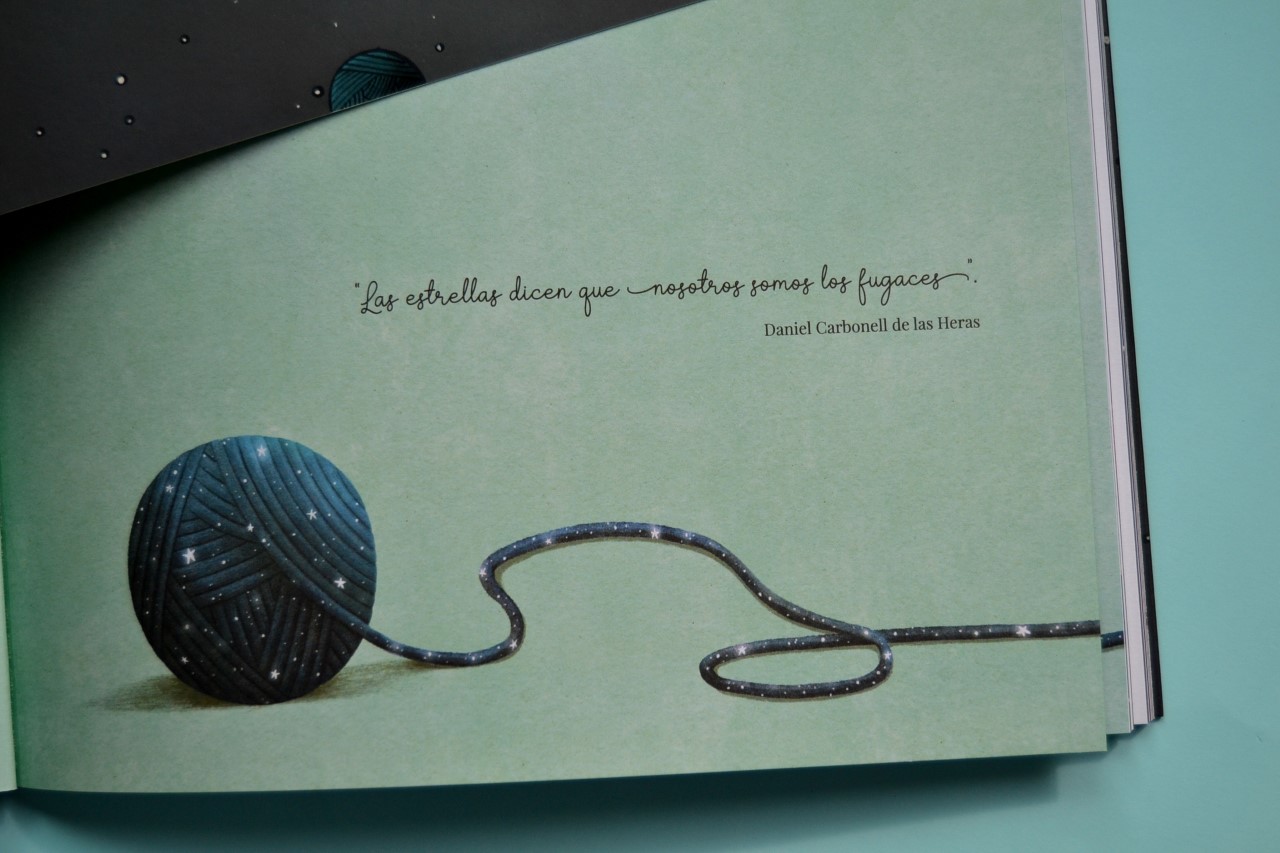 "Las estrellas dicen que nosotros somos los fugaces".
Daniel Carbonell de las Heras